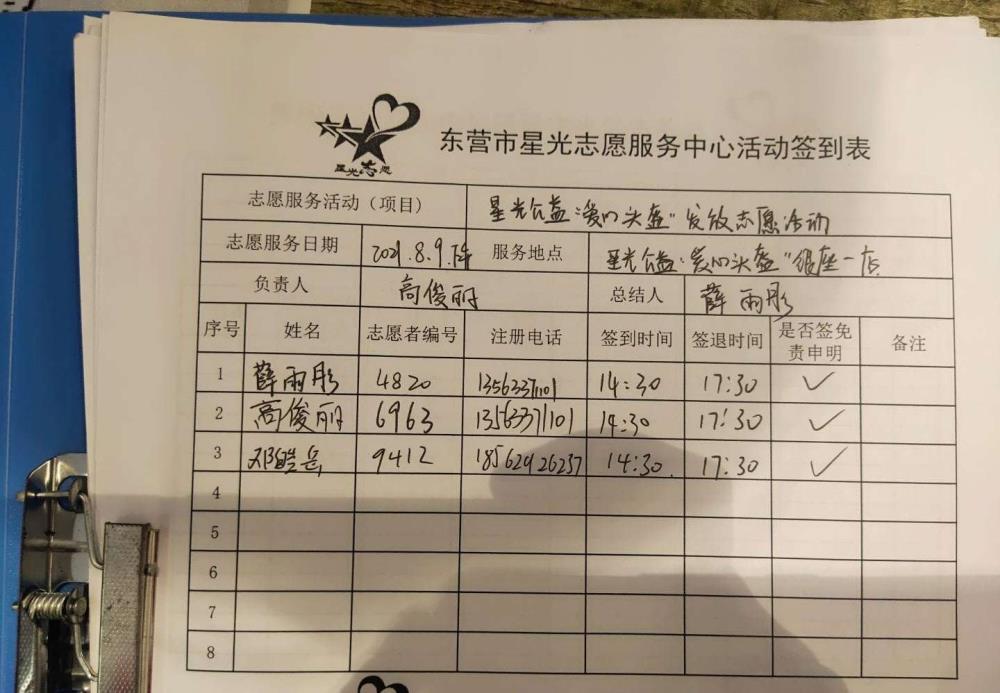 星光志愿
东营市星光志愿服务中心活动签到表
志愿服务活动（项目） 星光公益:"爱心头盔"发放志愿活动
志愿服务日期 2021.8.9.下午 服务地点 星光公益:"爱心头盔"银座一店
负责人 高俊丽 总结人 薛雨彤
序号 姓名 志愿者编号 注册电话 签到时间 签退时间 是否签免责申明 备注
1 薛雨彤 4820 13563371101 14:30 17:30 ✓
2 高俊丽 6963 13563371101 14:30 17:30 ✓
3 邓皓岳 9412 18562926237 14:30 17:30 ✓
4
5
6
7
8